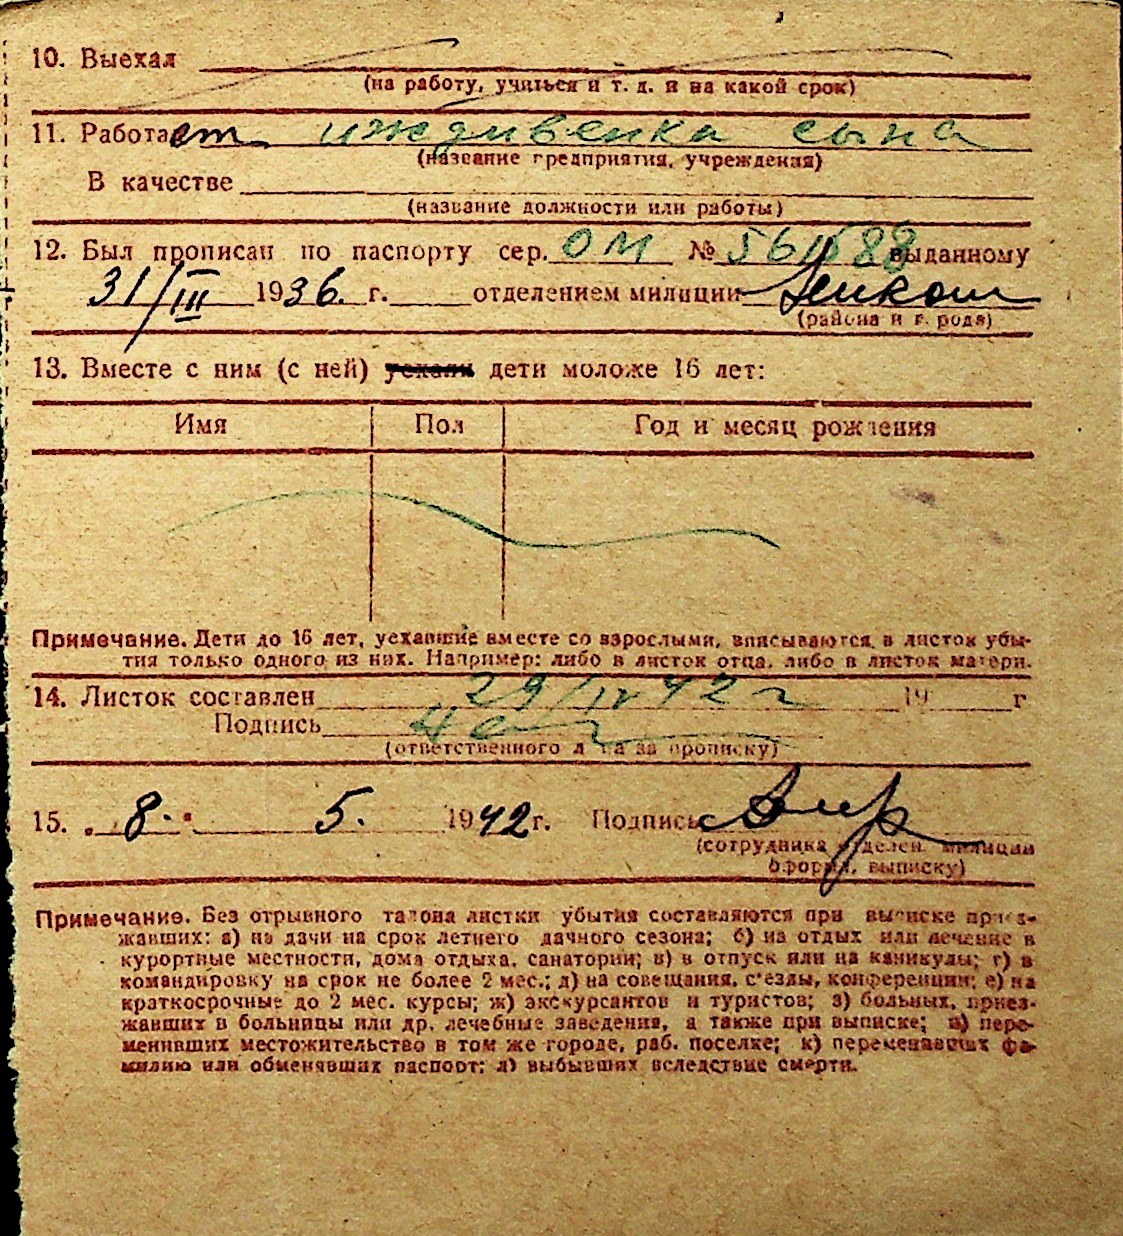 10. Выехал
(на работу, учиться и т. д. и на какой срок)
11. Работает иждивенка сына
(название предприятия, учреждения)
В качестве
(название должности или работы)
12. Был прописан по паспорту сер. ОМ № выданному
31/III 1936. г. отделением милиции
(района и города)
13. Вместе с ним (с ней) уехали дети моложе 16 лет:
Имя Пол Год и месяц рождения
Примечание. Дети до 16 лет, уехавшие вместе со взрослыми, вписываются в листок убы-
тия только одного из них. Например: либо в листок отца, либо в листок матери.
14. Листок составлен 29/IV 42 г 19 г
Подпись
(ответственного лица за прописку)
15. „ 8. " 5. 1942 г. Подпись
(сотрудника отделен. милиции
оформ. выписку)
Примечание. Без отрывного талона листки убытия составляются при выписке приез-
жавших: а) на дачи на срок летнего дачного сезона; б) на отдых или лечение в
курортные местности, дома отдыха, санатории; в) в отпуск или на каникулы; г) в
командировку на срок не более 2 мес.; д) на совещания, с'езды, конференции; е) на
краткосрочные до 2 мес. курсы; ж) экскурсантов и туристов; з) больных, приез-
жавших в больницы или др. лечебные заведения, а также при выписке; и) пере-
менивших местожительство в том же городе, раб. поселке; к) переменивших фа-
милию или обменявших паспорт; л) выбывших вследствие смерти.